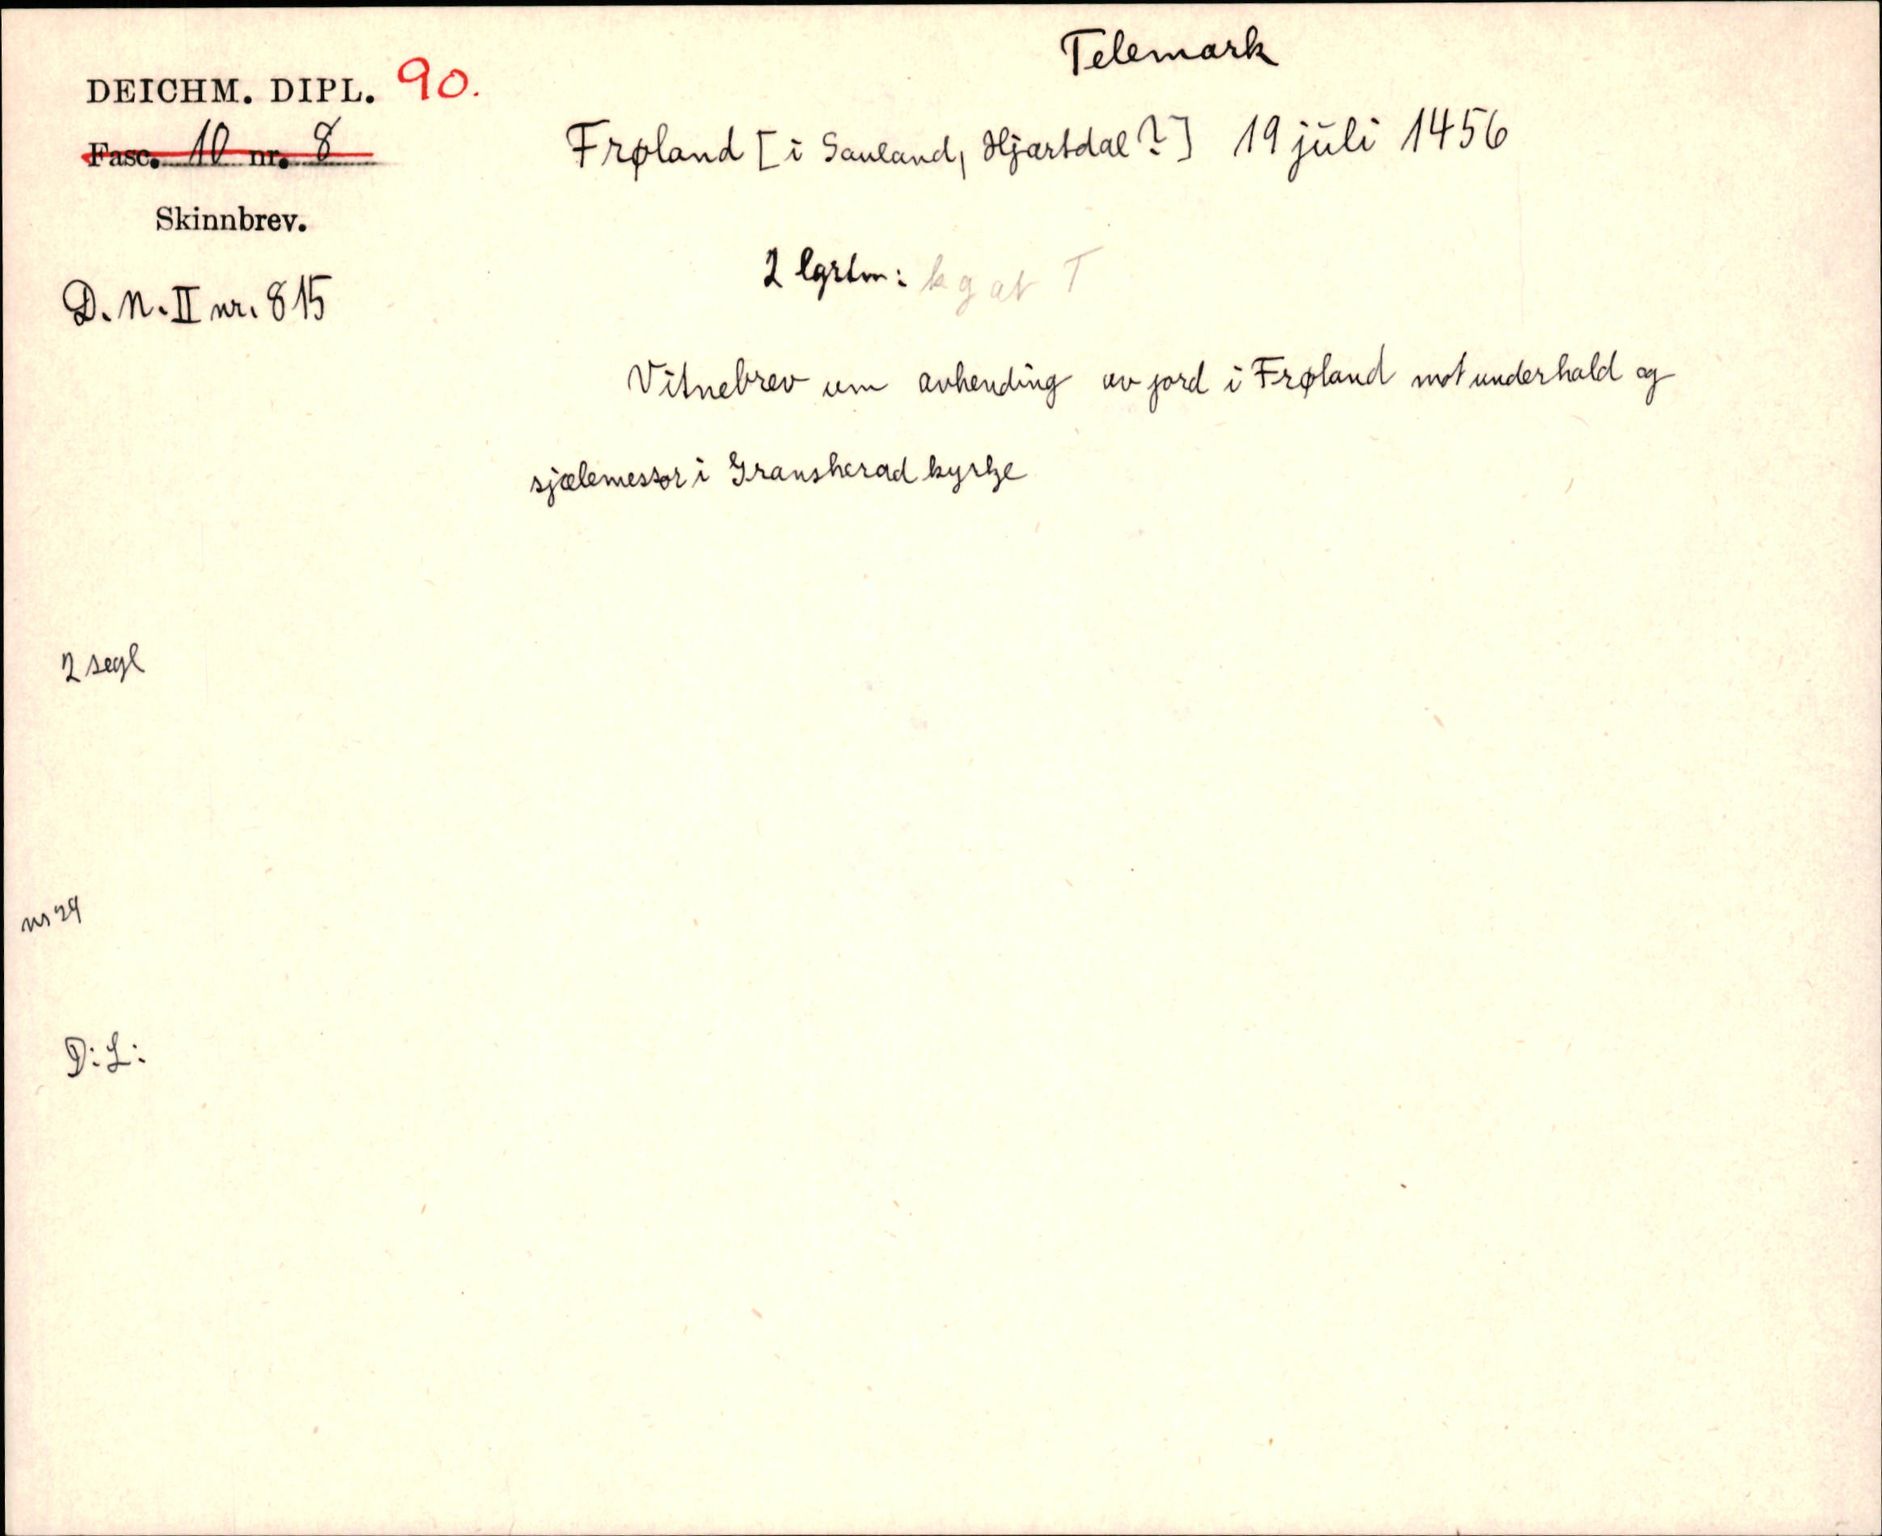 Telemark
DEICHM. DIPL. 90.
Fasc. 10 nr. 8
Frøland [i Sauland, Hjartdal?] 19 juli 1456
Skinnbrev.
D. N. II nr. 815
2 lgrtm: k g at T
Vitnebrev um avhending av jord i Frøland mot underhald og
sjælemessor i Gransherad kyrkje
2 segl
nr 29
D: L: